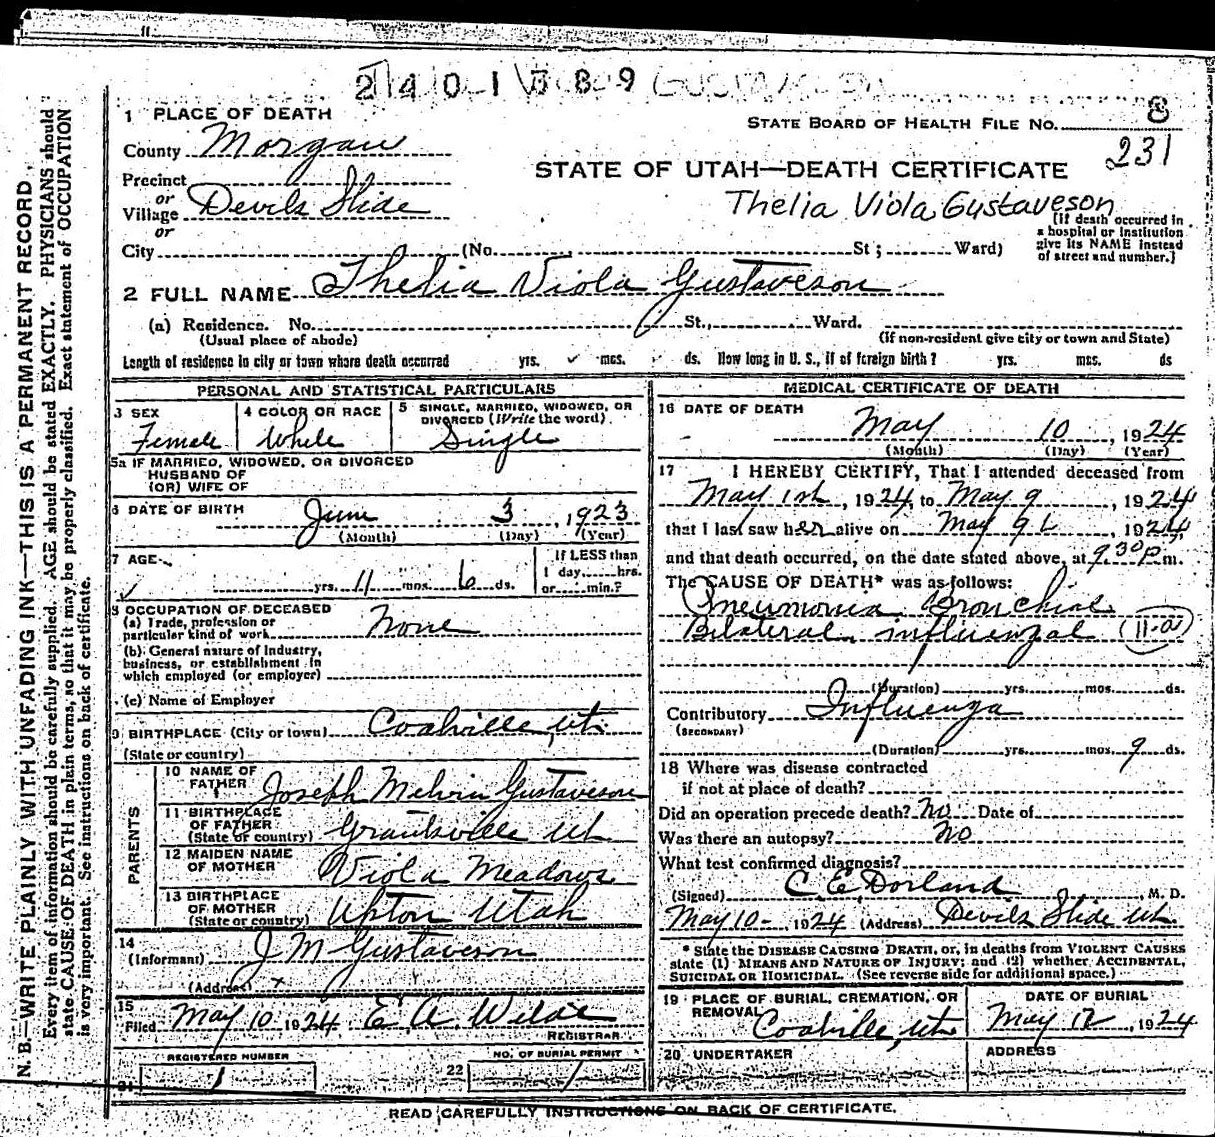 2401389
1 PLACE OF DEATH
STATE BOARD OF HEALTH FILE NO. 8
County Morgan
231
STATE OF UTAH—DEATH CERTIFICATE
Precinct
or
Village Devils Slide
Thelia Viola Gustaveson
or
[If death occurred in
a hospital or institution
give its NAME instead
of street and number.]
City (No. St; Ward)
2 FULL NAME Thelia Viola Gustaveson
(a) Residence. No. St., Ward.
(Usual place of abode) (If non-resident give city or town and State)
Length of residence in city or town where death occurred yrs. mos. ds. How long in U. S., if of foreign birth? yrs. mos. ds
PERSONAL AND STATISTICAL PARTICULARS
3 SEX
Female
4 COLOR OR RACE
White
5 SINGLE, MARRIED, WIDOWED, OR
DIVORCED (Write the word)
Single
5a IF MARRIED, WIDOWED, OR DIVORCED
HUSBAND OF
(OR) WIFE OF
6 DATE OF BIRTH June 3, 1923
(Month) (Day) (Year)
7 AGE
yrs. 11 mos 6 ds.
If LESS than
1 day, hrs.
or min.?
8 OCCUPATION OF DECEASED
(a) Trade, profession or
particular kind of work None
(b) General nature of industry,
business, or establishment in
which employed (or employer)
(c) Name of Employer
9 BIRTHPLACE (City or town) Coalville, Ut.
(State or country)
PARENTS
10 NAME OF
FATHER Joseph Melvin Gustaveson
11 BIRTHPLACE
OF FATHER
(State or country) Grantsville Ut.
12 MAIDEN NAME
OF MOTHER Viola Meadows
13 BIRTHPLACE
OF MOTHER
(State or country) Upton Utah
14
(Informant) J M Gustaveson
(Address)
15
Filed May 10 1924. E A. Wilde
REGISTRAR
REGISTERED NUMBER
21 1
NO. OF BURIAL PERMIT
22 1
MEDICAL CERTIFICATE OF DEATH
16 DATE OF DEATH
May 10, 1924
(Month) (Day) (Year)
17 I HEREBY CERTIFY, That I attended deceased from
May 1st, 1924, to May 9, 1924
that I last saw her alive on May 9, 1924,
and that death occurred, on the date stated above, at 9.30 P. m.
The CAUSE OF DEATH* was as follows:
Pneumonia Bronchial
Bilateral, influenzal (11-a)
(Duration) yrs. mos. ds.
Contributory Influenza
(SECONDARY)
(Duration) yrs. mos. 9 ds.
18 Where was disease contracted
if not at place of death?
Did an operation precede death? No Date of
Was there an autopsy? No
What test confirmed diagnosis?
(Signed) C. E. Dorland, M. D.
May 10-, 1924 (Address) Devils Slide Ut.
* State the DISEASE CAUSING DEATH, or, in deaths from VIOLENT CAUSES
state (1) MEANS AND NATURE OF INJURY; and (2) whether ACCIDENTAL,
SUICIDAL OR HOMICIDAL. (See reverse side for additional space.)
19 PLACE OF BURIAL, CREMATION, OR
REMOVAL Coalville, Ut.
DATE OF BURIAL
May 12, 1924
20 UNDERTAKER
ADDRESS
READ CAREFULLY INSTRUCTIONS ON BACK OF CERTIFICATE.
N. B.—WRITE PLAINLY WITH UNFADING INK—THIS IS A PERMANENT RECORD.
Every item of information should be carefully supplied. AGE should be stated EXACTLY. PHYSICIANS should
state CAUSE OF DEATH in plain terms, so that it may be properly classified. Exact statement of OCCUPATION
is very important. See instructions on back of certificate.